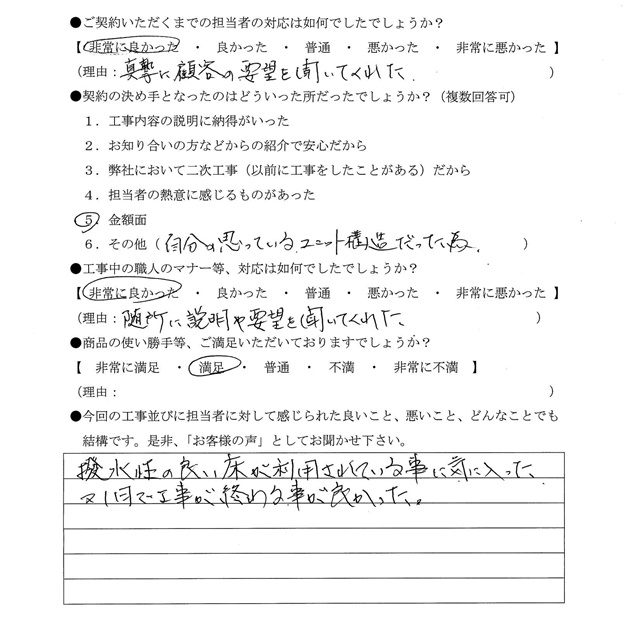 ●ご契約いただくまでの担当者の対応は如何でしたでしょうか？
【 非常に良かった ・ 良かった ・ 普通 ・ 悪かった ・ 非常に悪かった 】
（理由：真摯に顧客の要望を聞いてくれた. ）
●契約の決め手となったのはどういった所だったでしょうか？（複数回答可）
１．工事内容の説明に納得がいった
２．お知り合いの方などからの紹介で安心だから
３．弊社において二次工事（以前に工事をしたことがある）だから
４．担当者の熱意に感じるものがあった
５．金額面
６．その他（自分の思っているユニット構造だった為. ）
●工事中の職人のマナー等、対応は如何でしたでしょうか？
【 非常に良かった ・ 良かった ・ 普通 ・ 悪かった ・ 非常に悪かった 】
（理由：随所に説明や要望を聞いてくれた. ）
●商品の使い勝手等、ご満足いただいておりますでしょうか？
【 非常に満足 ・ 満足 ・ 普通 ・ 不満 ・ 非常に不満 】
（理由： ）
●今回の工事並びに担当者に対して感じられた良いこと、悪いこと、どんなことでも
結構です。是非、「お客様の声」としてお聞かせ下さい。
撥水性の良い床が利用されている事に気に入った
又1日で工事が終わる事が良かった。